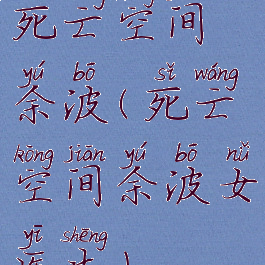 死亡空间
yú bō sǐ wáng
余波(死亡
kōng jiān yú bō nǚ
空间余波女
yī shēng
医生)